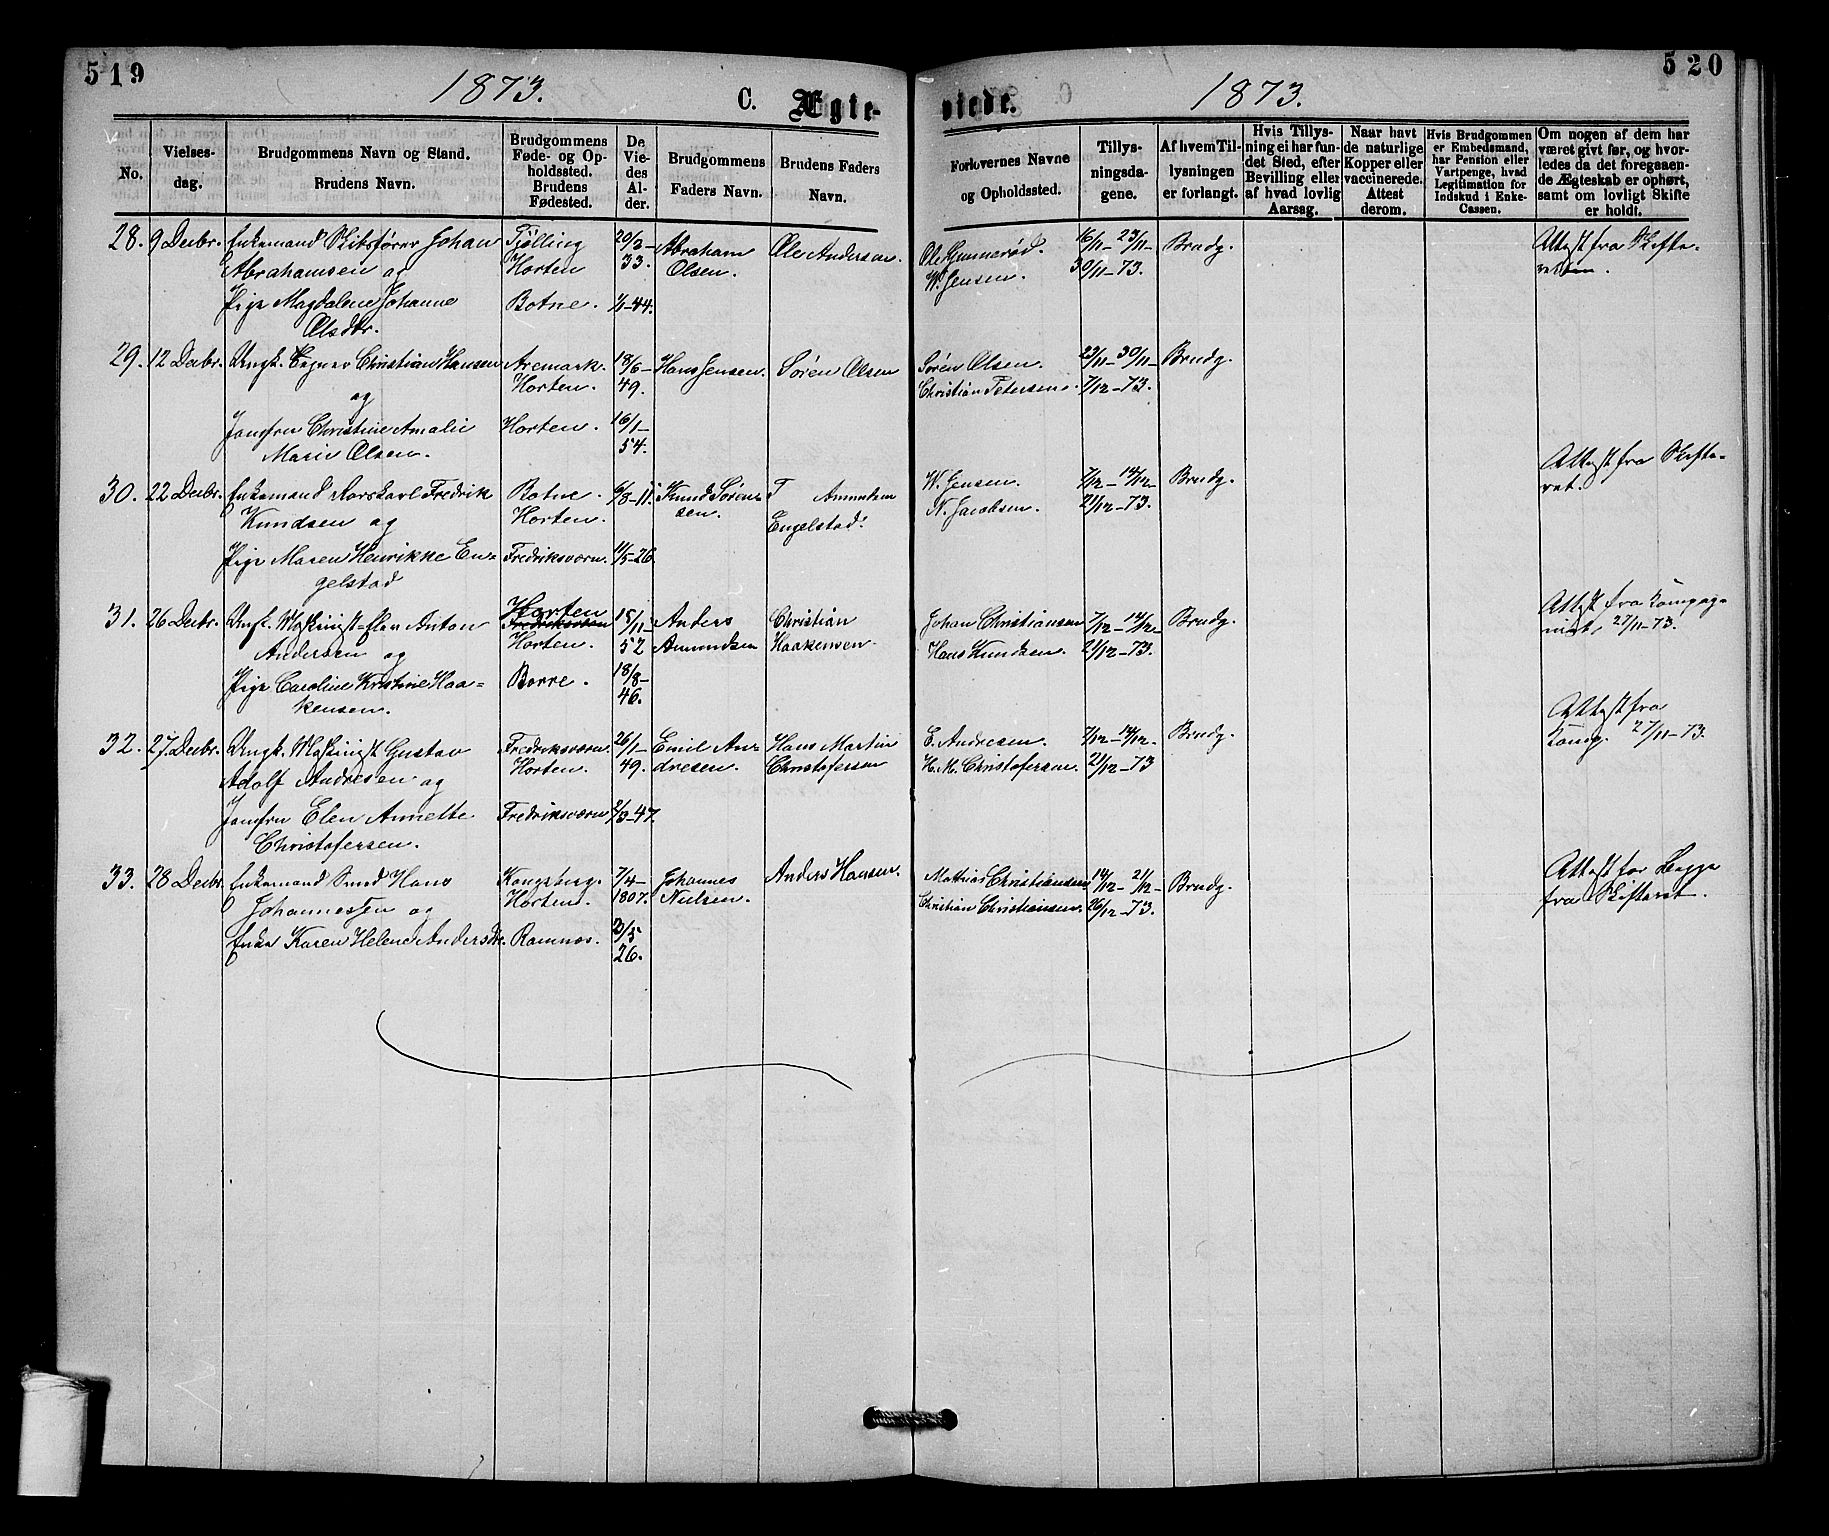 519
1873.
C. Ægte-
No.
Vielses-
dag.
Brudgommens Navn og Stand.
Brudens Navn.
Brudgommens
Føde- og Op-
holdssted.
Brudens
Fødested.
De
Vie-
des
Al-
der.
Brudgommens
Faders Navn.
Brudens Faders
Navn.
28. 9 Decbr. Enkemand Skibsfører Johan Tjølling 20/3- Abraham Ole Andersen.
Abrahamsen og Horten 33. Olsen.
Pige Magdalene Johanne Botne. 1/1-44.
Olsdtr.
29. 12 Decbr. Ungk. Christian Hansen Aremark. 18/6- Hans Jensen. Søren Olsen
og Horten. 49.
Jomfru Christine Amalie Horten. 16/1-
Marie Olsen. 54.
30. 22 Decbr. Enkemand Fredrik Botne. 6/8-11. Knud Søren- T Amundsen
Knudsen og Horten. sen. Engelstad.
Pige Maren Henrikke En- Fredriksværn. 11/5-26.
gelstad
31. 26 Decbr. Ungk. Maskinist-Elev Anton Horten 18/11- Anders Christian
Andersen og Horten. 52 Amundsen Haakensen.
Pige Caroline Kristine Haa- Borre. 18/8-
kensen. 46.
32. 27 Decbr. Ungk. Maskinist Gustav Fredriksværn. 26/1- Emil An- Hans Martin
Adolf Andresen og Horten. 49. dresen. Christofersen
Jomfru Elen Annette Fredriksværn 2/3-47.
Christofersen.
33. 28 Decbr. Enkemand Smed Hans Kongsberg. 7/4- Johannes Anders Hansen.
Johannessen og Horten. 1807. Nielsen.
Enke Karen Helene Andersdtr. Ramnes. 2/5
26.
520
1873.
viede.
Forlovernes Navne
og Opholdssted.
Tillys-
ningsda-
gene.
Af hvem Til-
lysningen
er forlangt.
Hvis Tillys-
ning ei har fun-
det Sted, efter
Bevilling eller
af hvad lovlig
Aarsag.
Naar havt
de naturlige
Kopper eller
vaccinerede.
Attest
derom.
Hvis Brudgommen
er Embedsmand,
har Pension eller
Vartpenge, hvad
Legitimation for
Indskud i Enke-
Cassen.
Om nogen af dem har
været givt før, og hvor-
ledes da det foregaaen-
de Ægteskab er ophørt,
samt om lovligt Skifte
er holdt.
Ole Gunnerød. 16/11- 23/11- Brudg. Attest fra Skifte-
W. Jensen. 30/11-73. retten.
Søren Olsen. 23/11-30/11- Brudg.
Christian Petersen. 7/12-73.
W. Jensen. 7/12-14/12- Brudg. Attest fra Skifte-
N. Jacobsen. 21/12-73. ret.
Johan Christiansen 7/12-14/12- Brudg. Attest fra Kompag-
Hans Knudsen. 21/12-73. niet 27/11-73.
E. Andresen. 7/12-14/12. Brudg. Attest fra
H. M. Christofersen. 21/12-73 Komp. 27/11-73.
Mathias Christiansen 14/12- 21/12- Brudg. Attest for Begge
Christian Christiansen. 26/12-73. fra Skifteret.